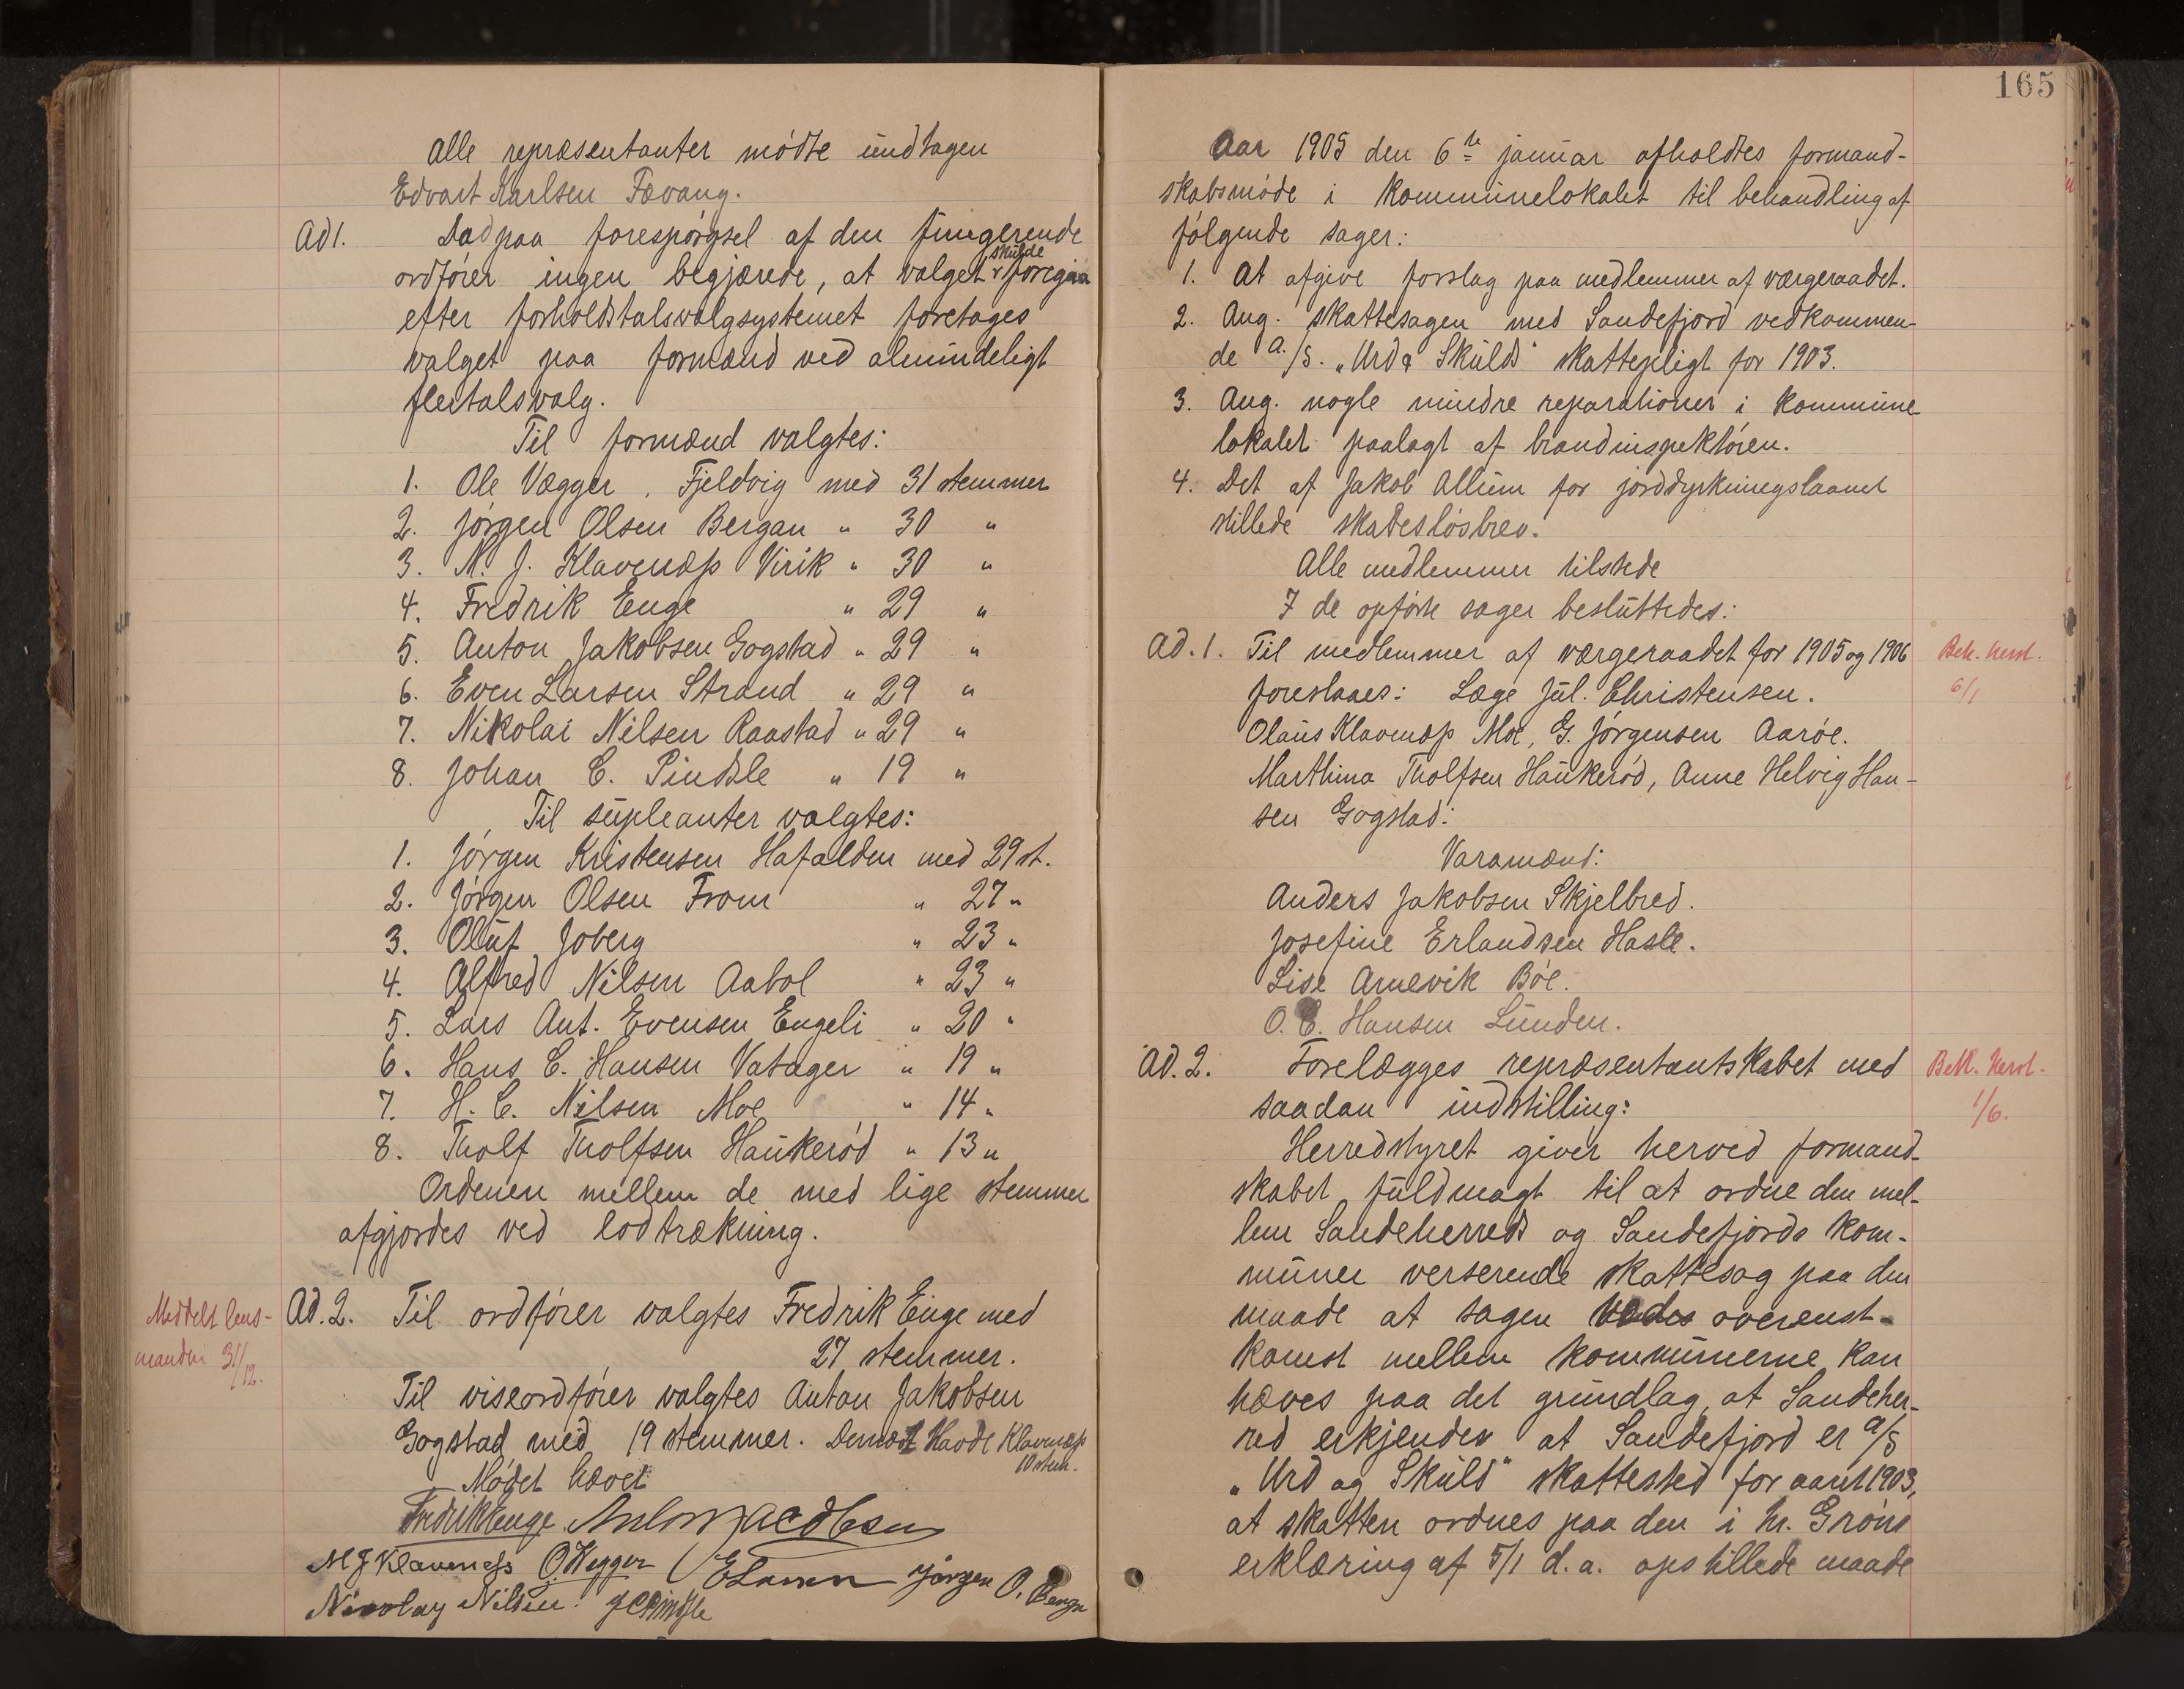 Alle repræsentanter mødte undtagen
Edvart Karlsen Fævang.
Ad 1. Da paa forespørgsel af den fungerende
ordfører ingen begjærede, at valget skulde foregaa
efter forholdstalsvalgsystemet foretages
valget paa formænd ved almindeligt
flertalsvalg.
Til formænd valgtes:
1. Ole Vegger, Fjeldvig med 31 stemmer
2. Jørgen Olsen Bergan " 30 "
3. M. J. Klavenæss Virik " 30 "
4. Fredrik Enge " 29 "
5. Anton Jakobsen Gogstad " 29 "
6. Even Larsen Strand " 29 "
7. Nikolai Nilsen Raastad " 29 "
8. Johan C. Pindsle " 19 "
Til supleanter valgtes:
1. Jørgen Kristensen Hafalden med 29 st.
2. Jørgen Olsen From " 27 "
3. Oluf Joberg " 23 "
4. Alfred Nilsen Aabol " 23 "
5. Lars Ant. Evensen Engeli " 20 "
6. Hans C. Hansen Vatager " 19 "
7. H. C. Nilsen Moe " 14 "
8. Tholf Tholfsen Haukerød " 13 "
Ordenen mellem de med lige stemmer
afgjordes ved lodtrækning.
Meddelt lens-
manden 31/12.
Ad. 2. Til ordfører valgtes Fredrik Enge med
27 stemmer.
Til viseordfører valgtes Anton Jakobsen
Gogstad med 19 stemmer. Dernæst havde Klavenæss
10 stem.
Mødet hævet
Fredrik Enge. Anton Jacobsen
M J Klavenæss O. Vegger E Larsen Jørgen O. Bergan
Nicolay Nilsen. J C Pindsle
165
Aar 1905 den 6te januar afholdtes formand-
skabsmøde i kommunelokalet til behandling af
følgende sager:
1. At afgive forslag paa medlemmer af værgeraadet.
2. Ang. skattesagen med Sandefjord vedkommen-
de A./S. „Urd & Skulds" skattepligt for 1903.
3. Ang. nogle mindre reparationer i kommune-
lokalet paalagt af brandinspektøren.
4. Det af Jakob Allum for jorddyrkningslaanet
stillede skadesløsbrev.
Alle medlemmer tilstede
I de opførte sager besluttedes:
Ad. 1. Til medlemmer af værgeraadet for 1905 og 1906
foreslaaes: Læge Jul. Christensen.
Olaus Klavenæss Moe, G. Jørgensen Aarøe.
Marthina Tholfsen Haukerød, Anne Helvig Han-
sen Gogstad:
Beh. herst.
6/1
Varamænd:
Anders Jakobsen Skjelbred.
Josefine Erlandsen Hasle.
Lise Arnevik Bøe.
O. C. Hansen Lunden.
Ad. 2. Forelægges repræsentantskabet med
saadan indstilling:
Beh. herst.
1/6.
Herredstyret giver herved formand-
skabet fuldmagt til at ordne den mel-
lem Sandeherreds og Sandefjords kom-
muner verserende skattesag paa den
maade at sagen vedes overenst-
komst mellem kommunerne kan
hæves paa det grundlag, at Sandeher-
red erkjender at Sandefjord er A/S
„Urd og Skuld" skattested for aaret 1903,
at skatten ordnes paa den i hr. Grøns
erklæring af 5/1 d. a. opstillede maade